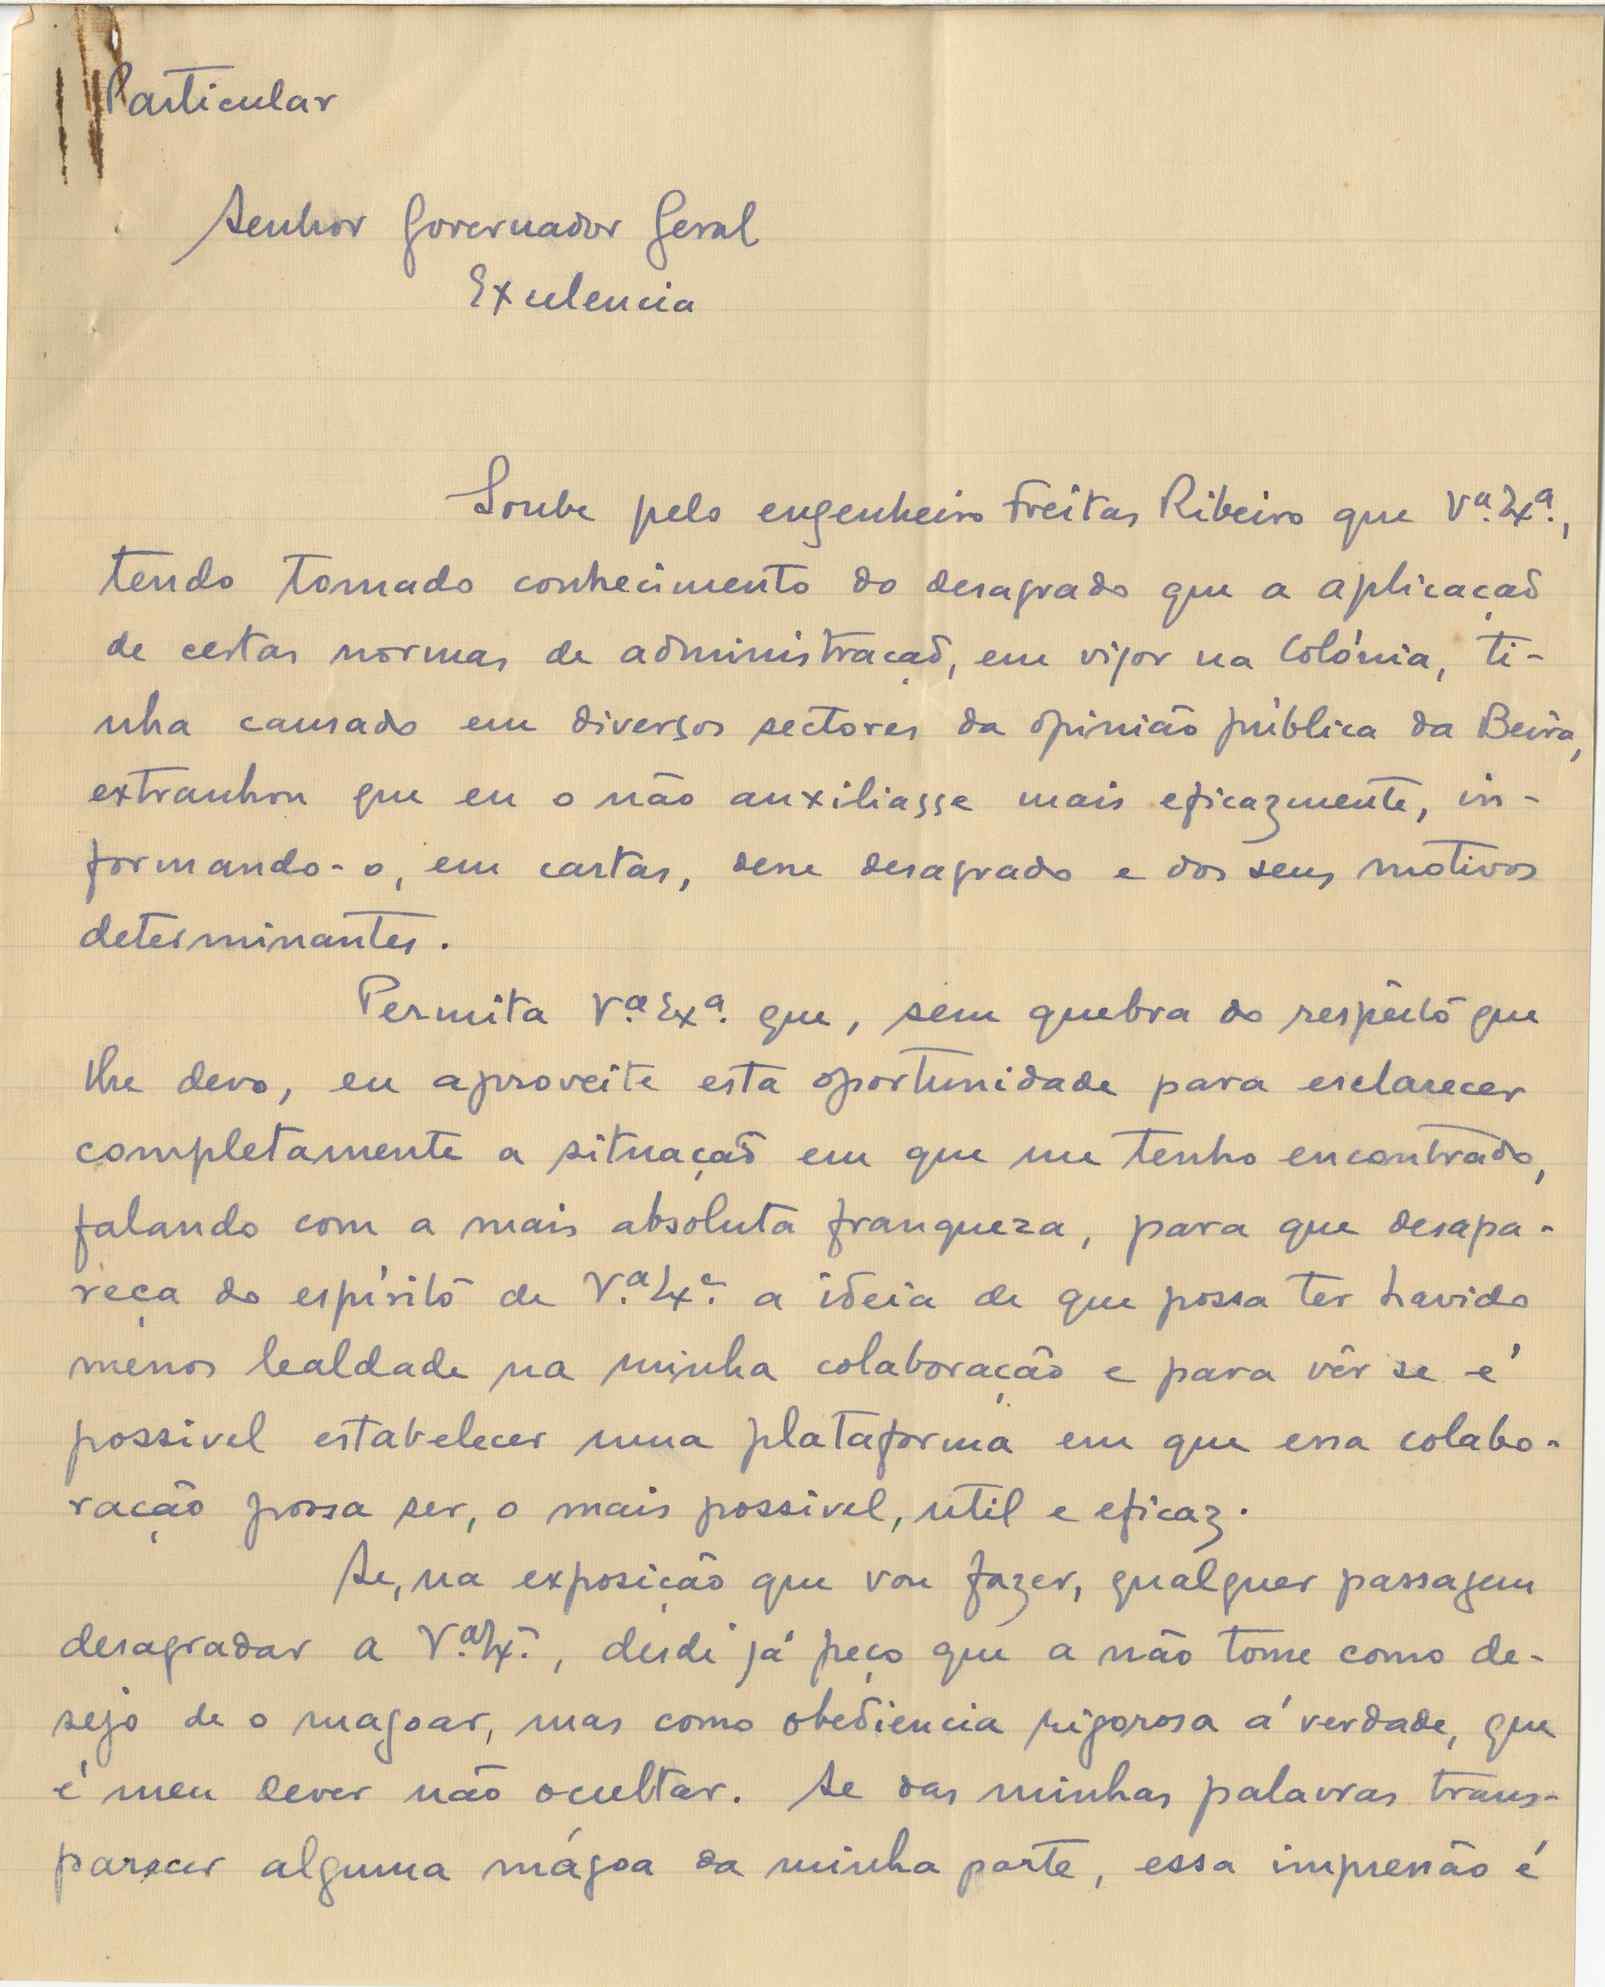 Particular
Senhor Governador Geral
Excelencia
Soube pelo engenheiro Freitas Ribeiro que V.ª Ex.ª,
tendo tomado conhecimento do desagrado que a aplicação
de certas normas de administração, em vigor na Colónia, ti-
nha causado em diversos sectores da opinião pública da Beira,
extranhou que eu o não auxiliasse mais eficazmente, in-
formando-o, em cartas, desse desagrado e dos seus motivos
determinantes.
Permita V.ª Ex.ª que, sem quebra do respeito que
lhe devo, eu aproveite esta oportunidade para esclarecer
completamente a situação em que me tenho encontrado,
falando com a mais absoluta franqueza, para que desapa-
reça do espírito de V.ª Ex.ª a ideia de que possa ter havido
menos lealdade na minha colaboração e para vêr se é
possivel estabelecer uma plataforma em que essa colabo-
ração possa ser, o mais possivel, util e eficaz.
Se, na exposição que vou fazer, qualquer passagem
desagradar a V.ª Ex.ª, desde já peço que a não tome como de-
sejo de o magoar, mas como obediencia rigorosa á verdade, que
é meu dever não ocultar. Se das minhas palavras trans-
parecer alguma mágoa da minha parte, essa impressão é